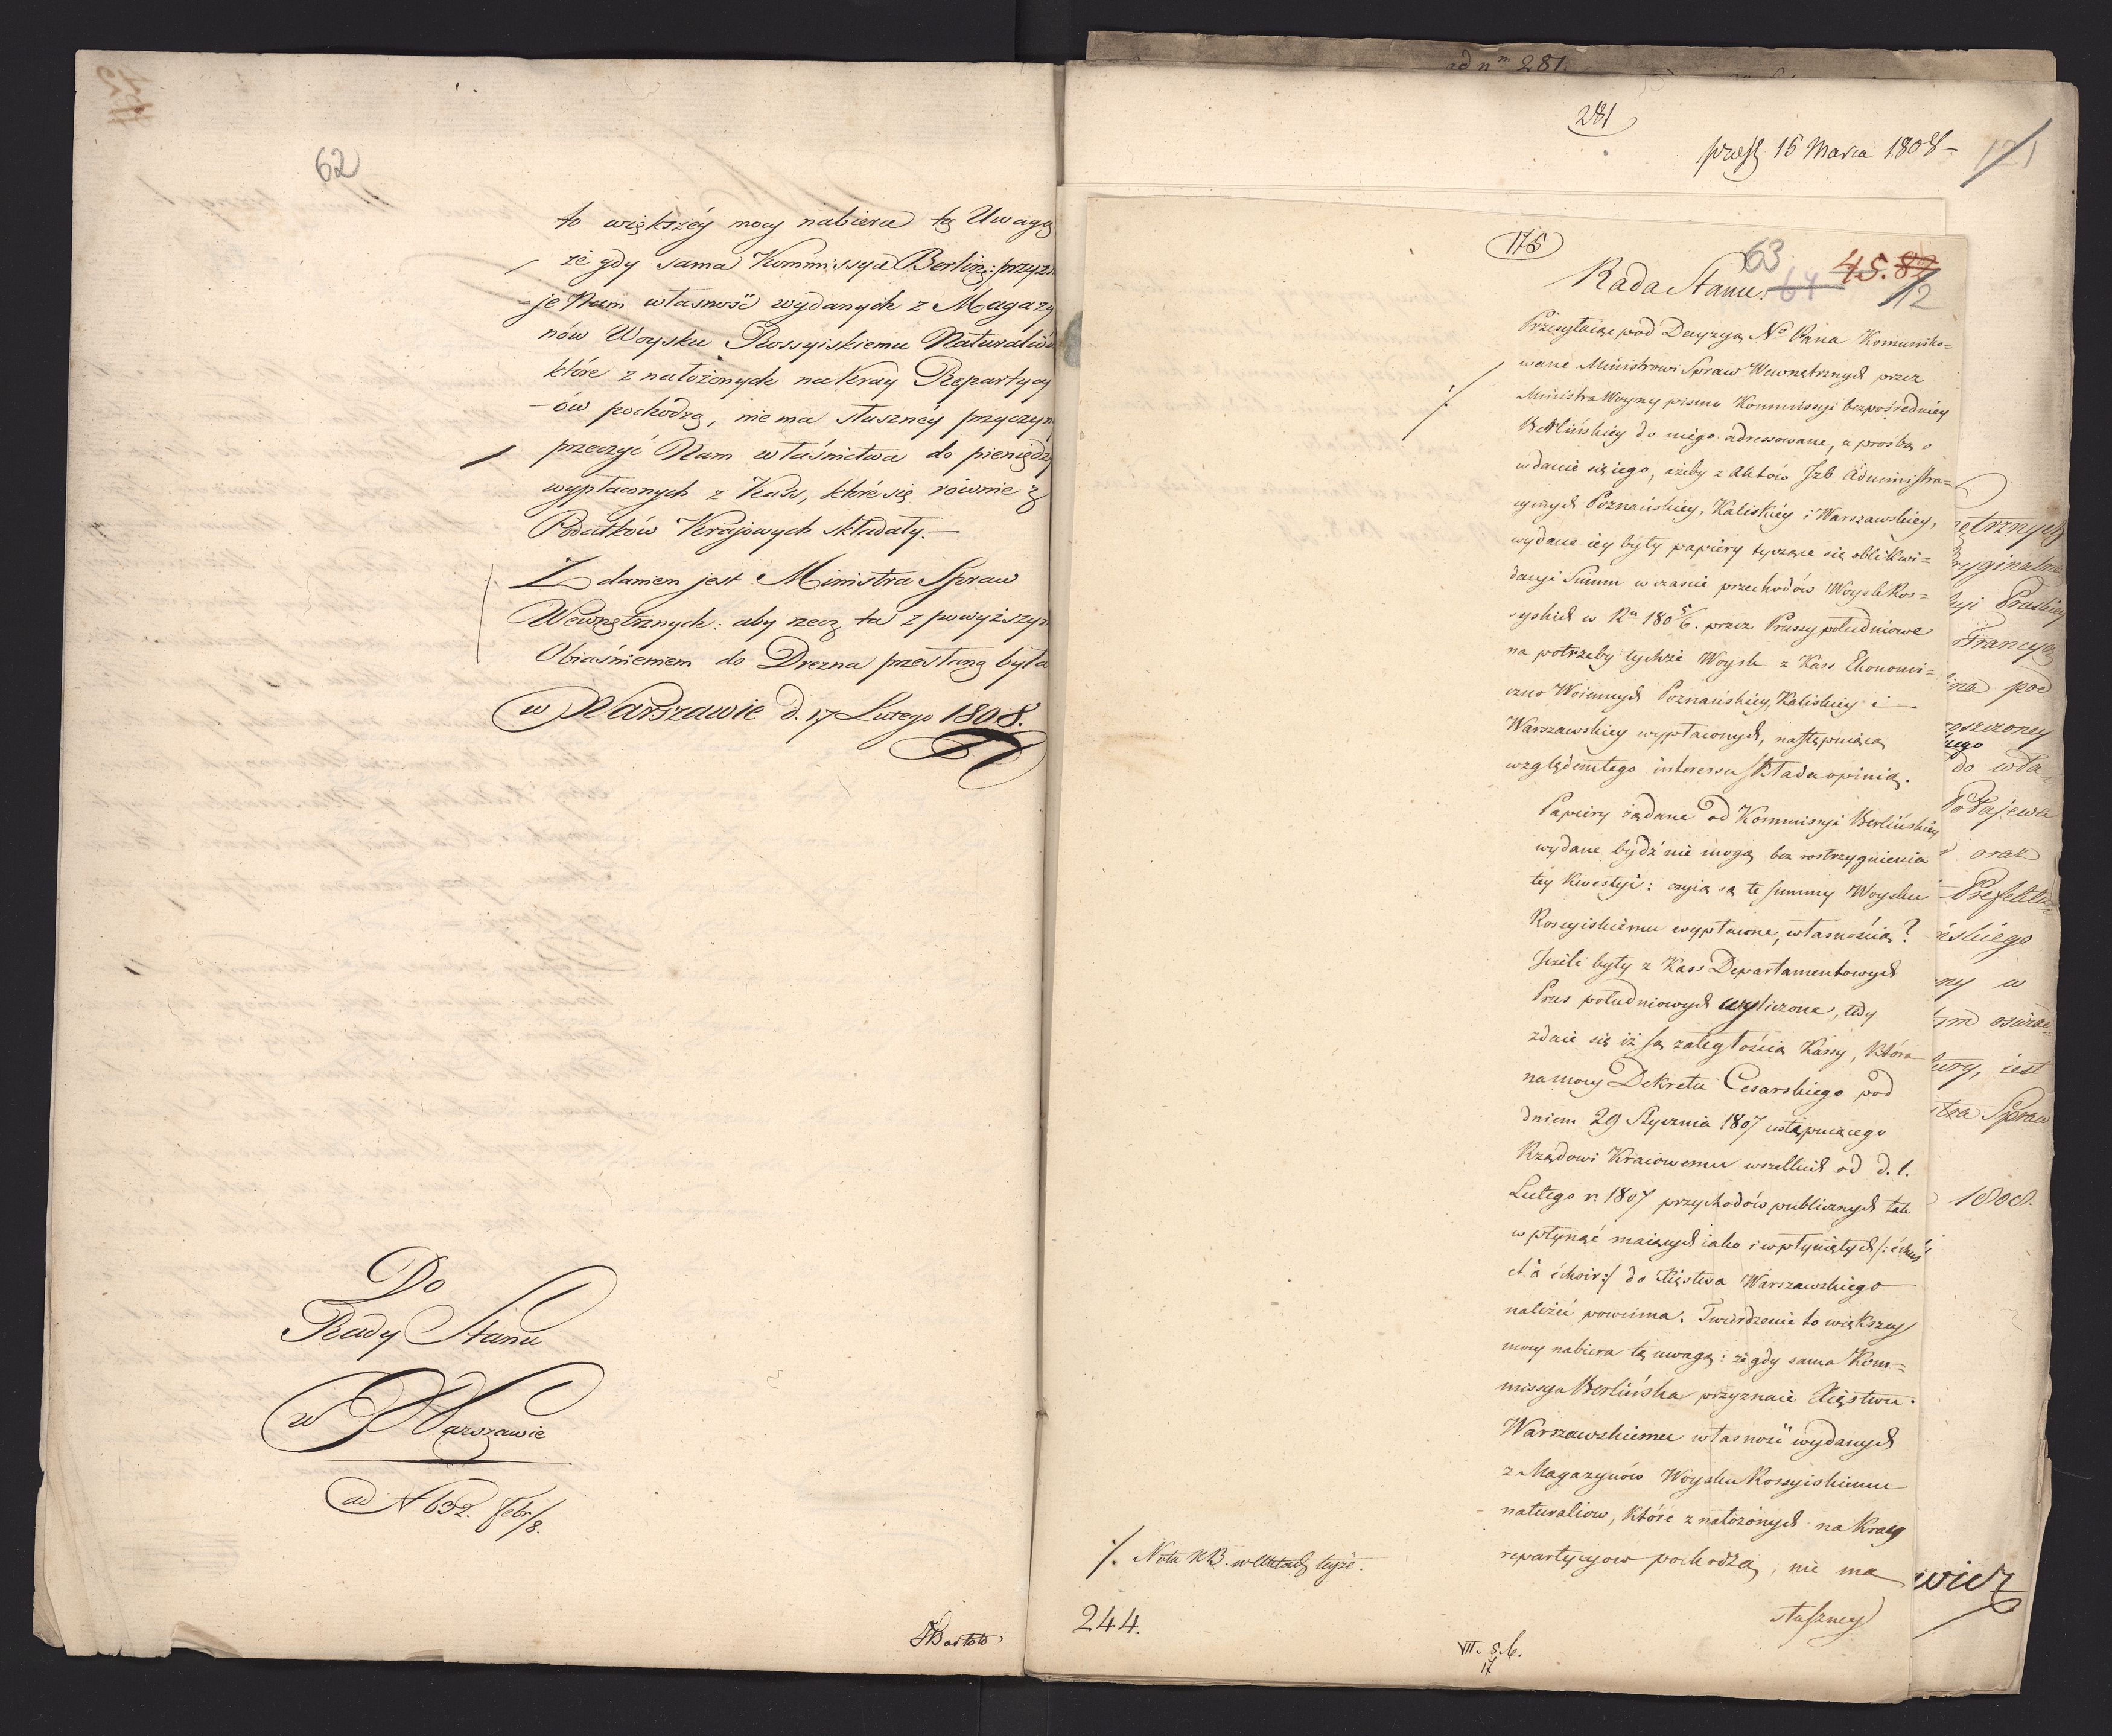 62
to większéy mocy nabiera tę Uwagę
że gdy sama Kommissya Berliń: przyzn
je Nam własność wydanych z Magazy
nów Woysku Rossyiskiemu Naturaliów
które z nałożonych na Kray Repartycy
-ów pochodzą, nie ma słusznéy przyczyn
przeczyć Nam własnictwa do pieniędzy
wypłaconych z Kass, które się równie z
Podatków Krajowych składały.—
Zdaniem jest Ministra Spraw
Wewnętrznych: aby rzecz ta z powyższym
Obiaśnieniem do Drezna przesłaną była
w Warszawie d. 17 Lutego 1808.
Do
Rady Stanu
w Warszawie
ad N 632. Febr/8.
ad nm 281.
281
præs 15 Marca 1808–
175
63
64
45. 87
12
Rada Stanu.
Przesyłaiąc pod Decyzyą Nº Pana Komuniko=
wane Ministrowi Spraw Wewnętrznych przez
Ministra Woyny pismo Kommissyi bezpośredniey
Berlińskiey do niego adressowane, z prośbą o
wdanie się iego, ażeby z Aktów Izb Administra=
cyinych Poznańskiey, Kaliskiey i Warszawskiey,
wydane iey były papiery tyczące się oblikwi=
dacyi Summ w czasie przechodów Woysk Ros=
syskich w Ru 180 5/6. przez Prussy południowe
na potrzeby tychże Woysk z Kass Ekonomi=
czno Woiennych Poznańskiey, Kaliskiey i
Warszawskiey wypłaconych, następuiącą
względem tego interessu składa opinią.
Papiery żądane od Kommissyi Berlińskiey
wydane bydź nie mogą bez rostrzygnienia
tey kwestyi: czyią są te summy Woysku
Rossyiskiemu wypłacone, własnością?
Jeżeli były z Kass Departamentowych
Prus południowych wyliczone, tedy
zdaie się iż są zaległością Kassy, która
na mocy Dekretu Cesarskiego pod
dniem 29 Stycznia 1807 ustępuiącego
Rządowi Kraiowemu wszelkich od d. 1.
Lutego r. 1807 przychodów publicznych tak
wpłynąć maiących iako i wpłyniętych /: échus
et à échoir:/ do Xięstwa Warszawskiego
należeć powinna. Twierdzenie to większey
mocy nabiera tą uwagą: że gdy sama Kom=
missya Berlińska przyznaie Xięstwu
Warszawskiemu własność wydanych
z Magazynów Woysku Rossyiskiemu
naturaliow, które z nałożonych na Kray
repartycyow pochodzą, nie ma
słuszney
/. Nota NB. w
244.
VII. 5.6.
17
ętrznych
ryginalne
Pruskiey
Francyą
pod
oszoney
do wła-
Połajewa
oraz
Prefektu=
skiego
ny w
ury, iest
tra Spraw
1808.
wicz